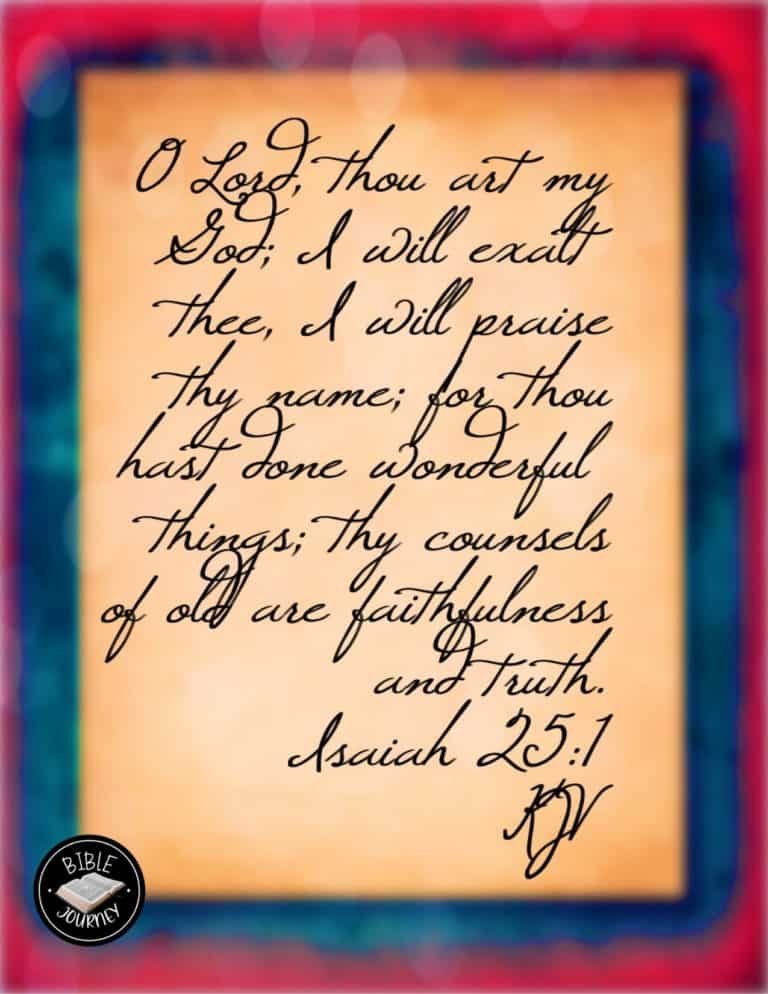 O Lord, thou art my
God; I will exalt
thee, I will praise
thy name; for thou
hast done wonderful
things; thy counsels
of old are faithfulness
and truth.
Isaiah 25:1
KJV
BIBLE
JOURNEY